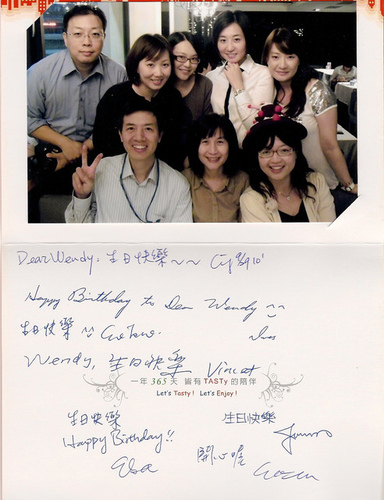 Dear Wendy, 生日快樂~~
Happy Birthday to Dear Wendy ^^
生日快樂 ^^
Wendy, 生日快樂 Vincent
一年 365 天 皆有 TASTy 的陪伴
Let's Tasty! Let's Enjoy!
生日快樂
Happy Birthday!!
Elsa
生日快樂
開心唷